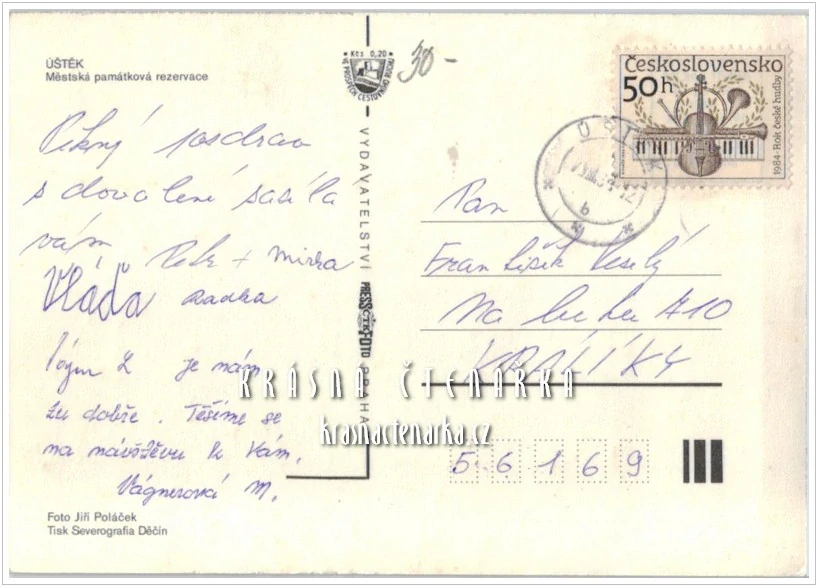 ÚŠTĚK
Městská památková rezervace
Kčs 0,20
VE PROSPĚCH CESTOVNÍHO RUCHU
30-
Československo
50h
1984-Rok české hudby
ÚŠTĚK
b
Pěkný pozdrav
s dovolené posíla
vám Petr + Mirka
Vláďa Radka
je nám
tu dobře. Těšíme se
na návštěvu k Vám.
Vágnerová M.
VYDAVATELSTVÍ PRESSFOTO PRAHA
ČTK
Pan
František Veselý
Na 410
KRALÍKY
56169
KRÁSNÁ ČTENÁŘKA
krasnactenarka.cz
Foto Jiří Poláček
Tisk Severografia Děčín